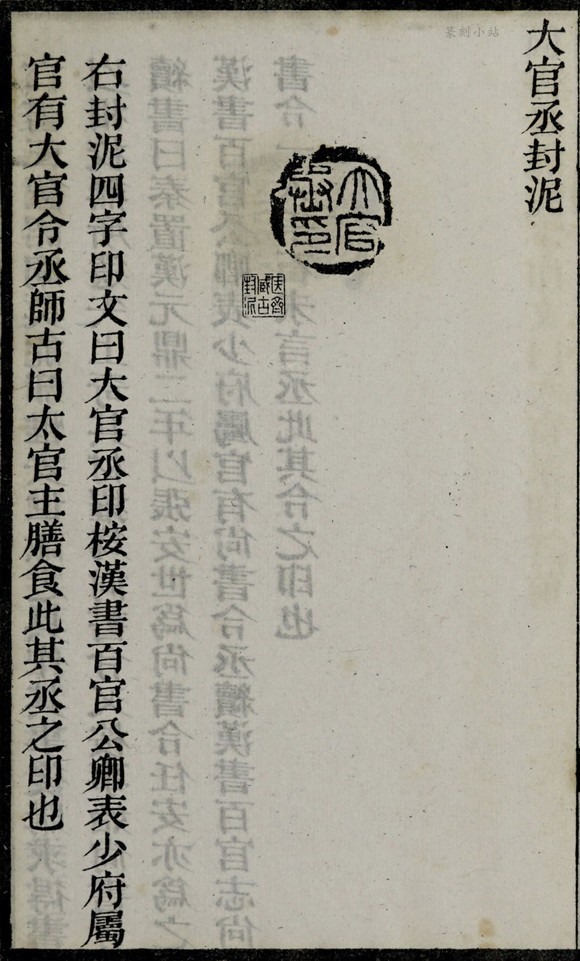 大官丞封泥
大官丞印
右封泥四字印文曰大官丞印桉漢書百官公卿表少府屬
官有大官令丞師古曰太官主膳食此其丞之印也
篆刻小站